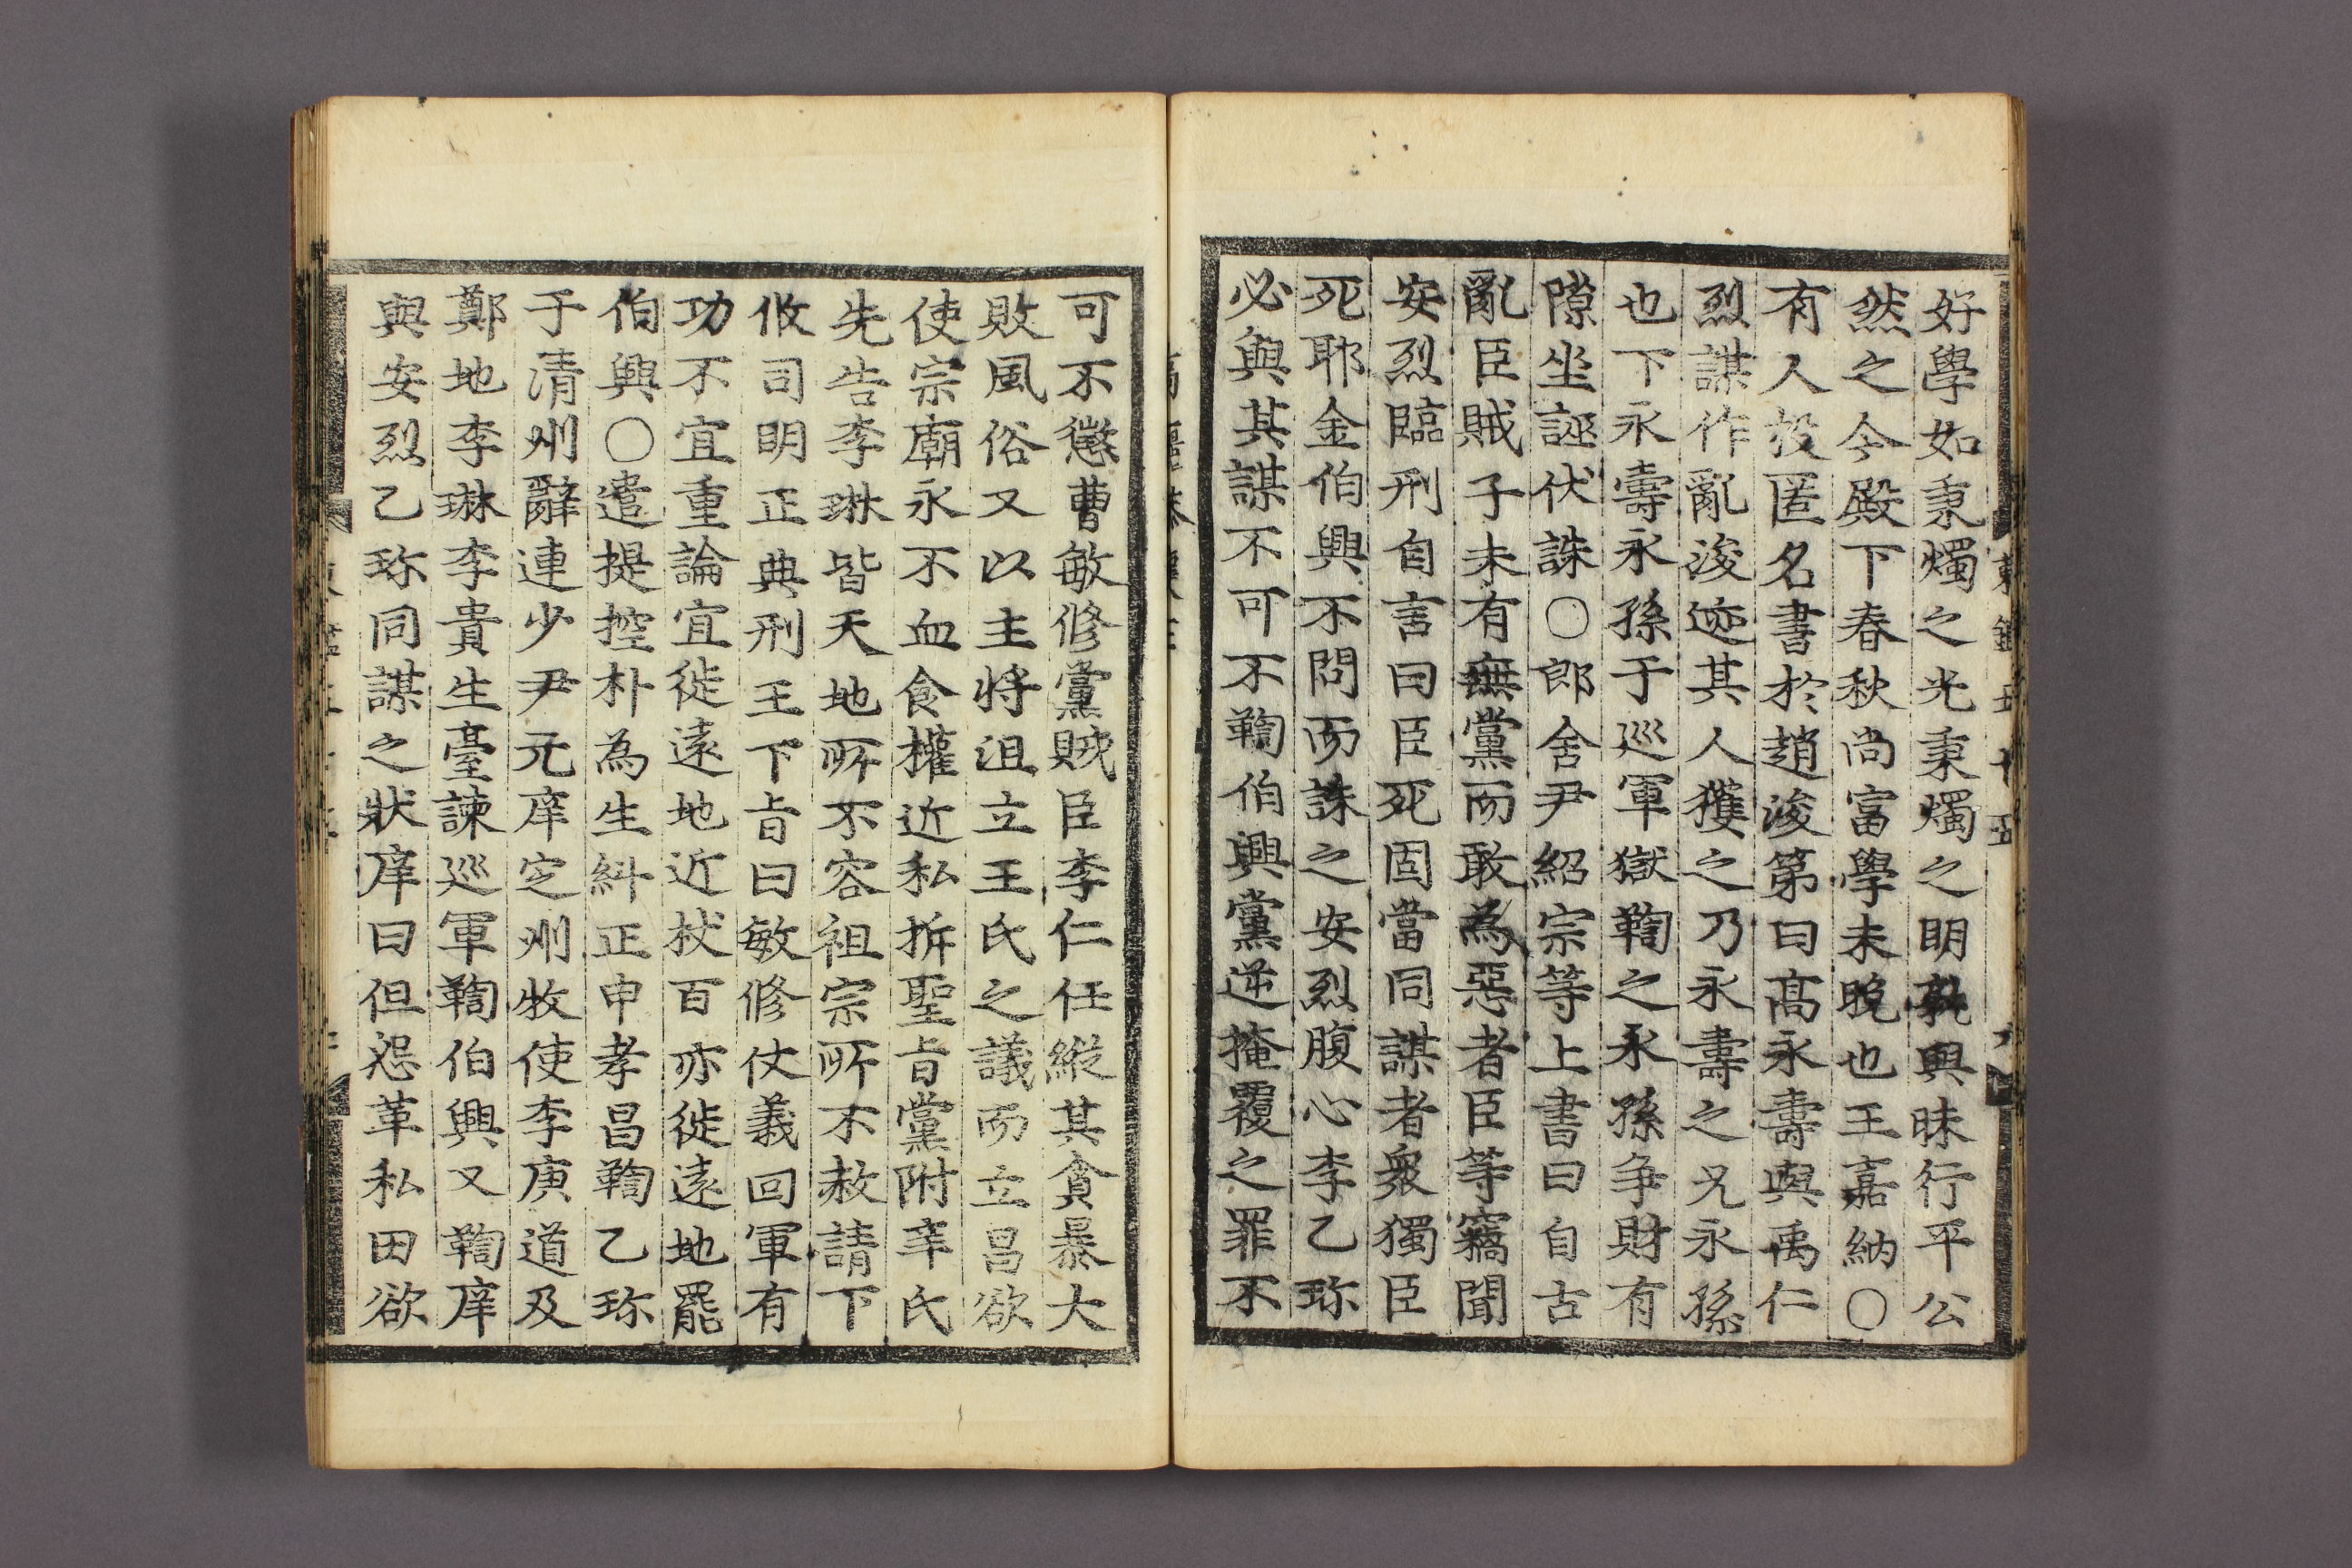 好學如秉燭之光秉燭之明孰與昧行平公
然之今殿下春秋尚富學未晚也王嘉納〇
有人投匿名書於趙浚第曰高永壽與禹仁
烈謀作亂浚迹其人獲之乃永壽之兄永孫
也下永壽永孫于巡軍獄鞫之永孫爭財有
隙坐誣伏誅〇郎舍尹紹宗等上書曰自古
亂臣賊子未有無黨而敢為惡者臣等竊聞
安烈臨刑自言曰臣死固當同謀者衆獨臣
死耶金伯興不問而誅之安烈腹心李乙珎
必與其謀不可不鞫伯興黨逆掩覆之罪不
可不懲曹敏修黨賊臣李仁任縱其貪暴大
敗風俗又以主將沮立王氏之議而立昌欲
使宗廟永不血食權近私拆聖旨黨附辛氏
先告李琳皆天地所不容祖宗所不赦請下
攸司明正典刑王下旨曰敏修仗義回軍有
功不宜重論宜徙遠地近杖百亦徙遠地罷
伯興〇遣提控朴為生糾正申孝昌鞫乙珎
于清州辭連少尹元庠定州牧使李庚道及
鄭地李琳李貴生臺諫巡軍鞫伯興又鞫庠
與安烈乙珎同謀之狀庠曰但怨革私田欲